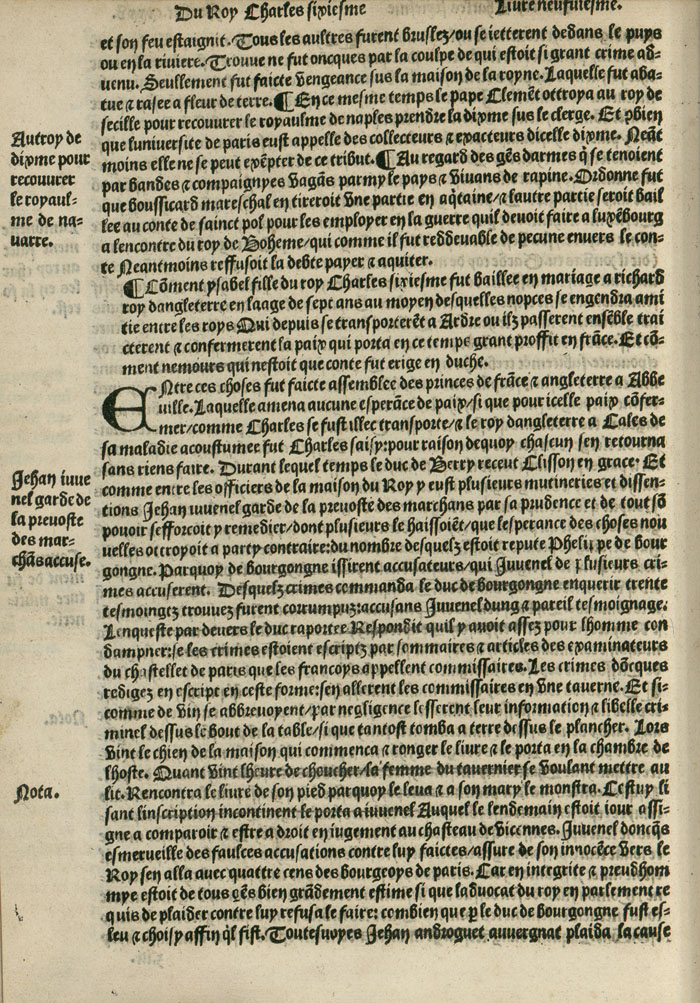 Du Roy Charles sixiesme
Livre neufuiesme.
et son feu estaignit. Tous les aultres furent bruslez/ou se ietterent dedans le puys
ou en la riuiere. Trouue ne fut oncques par la coulpe de qui estoit si grant crime ad-
uenu. Seullement fut faicte vengeance sus la maison de la royne. Laquelle fut aba-
tue ⁊ rasee a fleur de terre. ¶ En ce mesme temps le pape Clemẽt ottroya au roy de
secille pour recouurer le royaulme de naples prendre la dixme sus le clerge. Et ꝯbien
que luniuersite de paris eust appelle des collecteurs ⁊ exacteurs dicelle dixme. Neãt
moins elle ne se peut exẽpter de ce tribut. ¶ Au regard des gẽs darmes q̃ se tenoient
par bandes ⁊ compaignyes vagãs parmy le pays ⁊ viuans de rapine. Ordonne fut
que boussicard mareschal en tireroit vne partie en aq̃taine/⁊ lautre partie seroit bail
lee au conte de sainct pol pour les employer en la guerre quil deuoit faire a luxẽbourg
a lencontre du roy de Boheme/qui comme il fut reddeuable de pecune enuers le con-
te Neantmoins reffusoit la debte payer ⁊ aquiter.
Autroy de
dixme pour
recouurer
le royaul-
me de na-
uarre.
¶ Cõment ysabel fille du roy Charles sixiesme fut baillee en mariage a richard
roy dangleterre en laage de sept ans au moyen desquelles nopces se engendra ami
tie entre les roys Qui depuis se transporterẽt a Ardre ou ilz passerent ensẽble trai
cterent ⁊ confermerent la paix qui porta en ce temps grant proffit en frãce. Et cõ-
ment nemours qui nestoit que conte fut erige en duche.
ENtre ces choses fut faicte assemblee des princes de frãce ⁊ angleterre a Abbe
uille. Laquelle amena aucune esperãce de paix/si que pour icelle paix cõfer-
mer/comme Charles se fust illec transporte/⁊ le roy dangleterre a Cales de
sa maladie acoustumer fut Charles saisy:pour raison dequoy chascun sen retourna
sans riens faire. Durant lequel temps le duc de Berry receut Clisson en grace. Et
comme entre les officiers de la maison du Roy y eust plusieurs mutineries et dissen-
tions Jehan iuuenel garde de la preuoste des marchans par sa prudence et de tout sõ
pouoir sefforcoit y remedier/dont plusieurs le haissoiẽt/que lesperance des choses nou
uelles ottroyoit a party contraire:du nombre desquelz estoit repute Phelippe de bour
gongne. Parquoy de bourgongne issirent accusateurs/qui Juuenel de plusieurs cri-
mes accuserent. Desquelz crimes commanda le duc de bourgongne enquerir trente
tesmoingtz trouuez furent corrumpuz:accusans Juuenel dung ⁊ pareil tesmoignage.
Lenqueste par deuers le duc raportee Respondit quil y auoit assez pour lhomme con
dampner:se les crimes estoient escriptz par sommaires ⁊ articles des examinateurs
du chastellet de paris que les francoys appellent commissaires. Les crimes dõcques
redigez en escript en ceste forme:sen allerent les commissaires en vne tauerne. Et si-
comme de vin se abbreuoyent/par negligence lesserent leur information ⁊ libelle cri-
minel dessus le bout de la table/si que tantost tomba a terre dessus le plancher. Lors
vint le chien de la maison qui commenca ⁊ ronger le liure ⁊ le porta en la chambre de
lhoste. Quant vint lheure de choucher/la femme du tauernier se voulant mettre au
lit. Rencontra le liure de son pied parquoy le leua ⁊ a son mary le monstra. Cestuy li
sant linscription incontinent le porta a iuuenel Auquel le lendemain estoit iour assi-
gne a comparoir ⁊ estre a droit en iugement au chasteau de vicennes. Juuenel doncq̃s
esmerueille des faulces accusations contre luy faictes/assure de son innocẽce vers le
Roy sen alla auec quattre cens des bourgeoys de paris. Car en integrite ⁊ preudhom
mye estoit de tous gẽs bien grãdement estime si que laduocat du roy en parlement re
quis de plaider contre luy refusa le faire: combien que ꝑ le duc de bourgongne fust es-
leu ⁊ choisy affin q̃l fist. Toutesuoyes Jehan androguet auuergnat plaida la cause
Jehan iuue
nel garde de
la preuoste
des mar-
chãs accuse.
Nota.